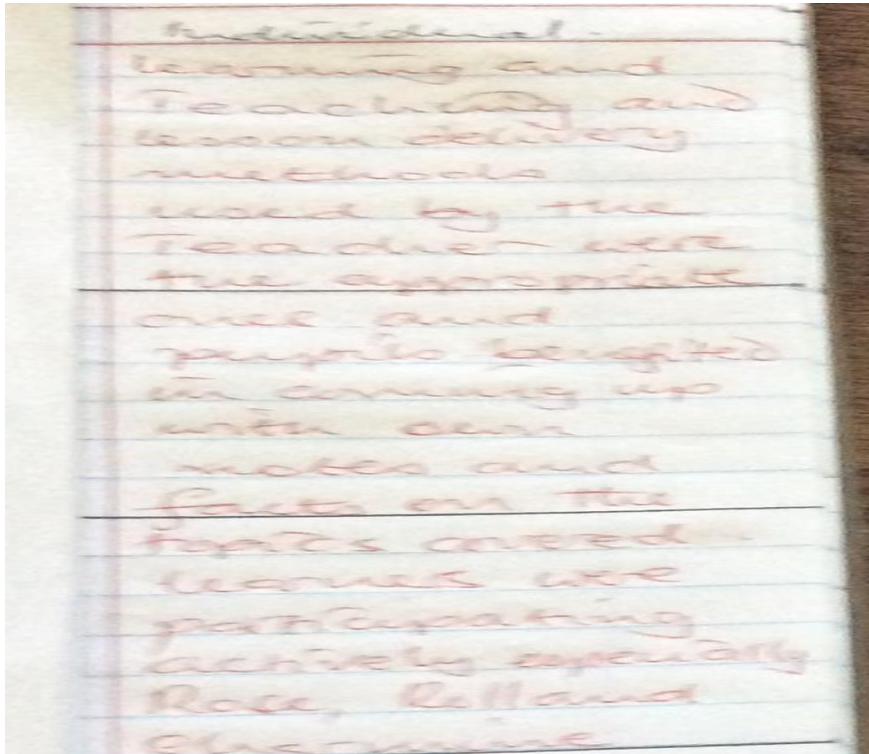 Individual.
Learning and
Teaching and
lesson delivery
methods
used by the
Teacher were
the appropriate
ones and
pupils benefited
in coming up
with own
notes and
facts on the
topics covered.
Learners were
participating
actively especially